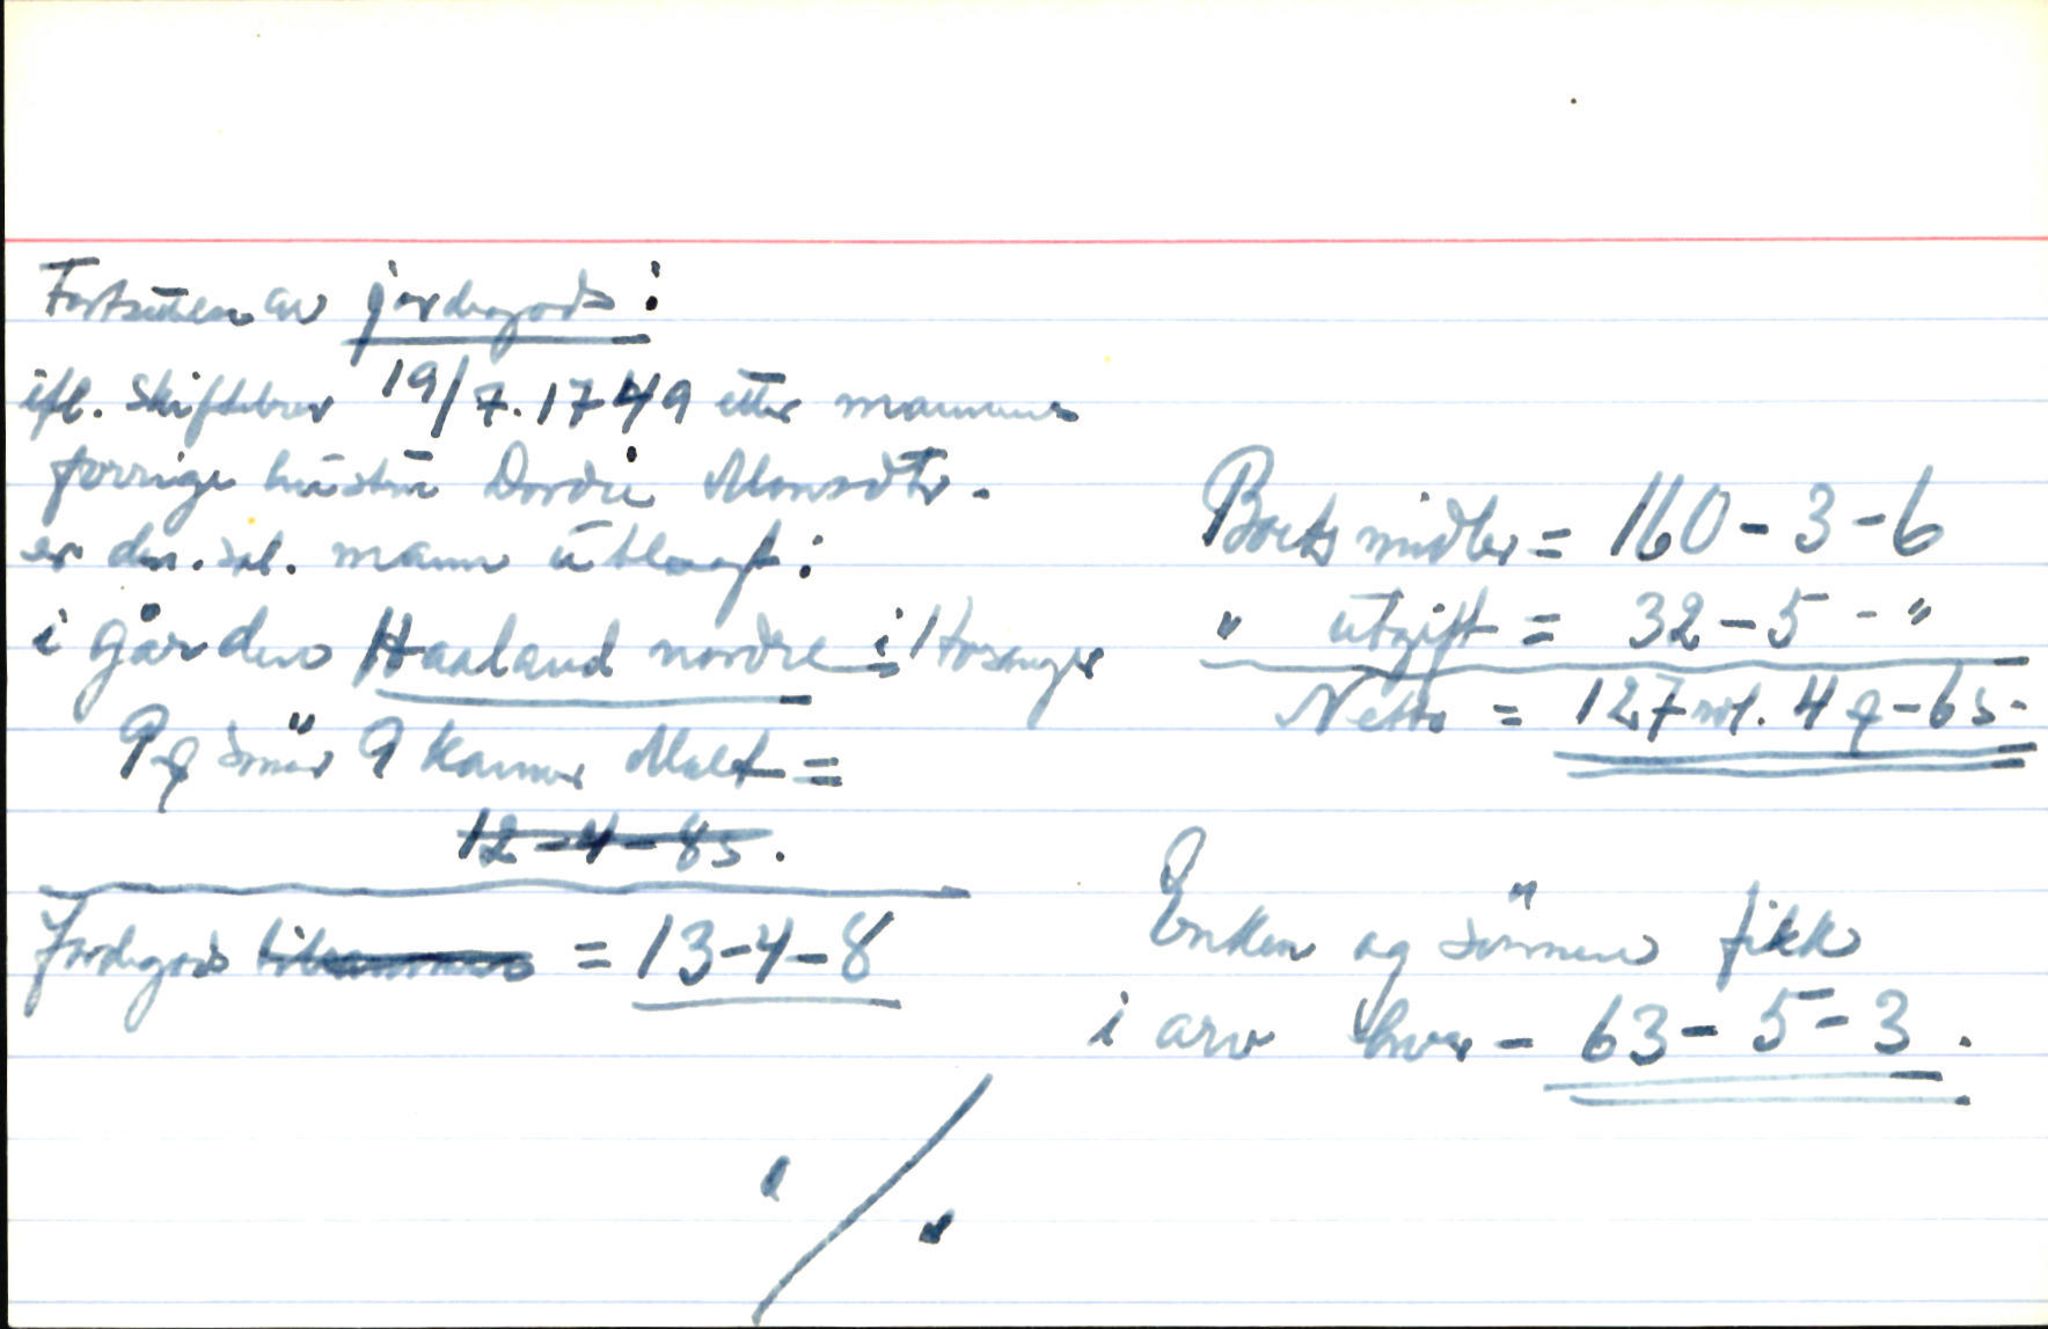 Fortsettelse av jordegods:
ifl. Skiftebrev 19/7.1749 etter mannens
forrige hústrú Dordie Monsdtr.
er den. sal. mann útlagt:
i gården Haaland nordre i Hosanger
9 smör 9 kanner Malt =
12-4-8s.
Jordegods tilsammen = 13-4-8
Boets midler = 160-3-6
" útgift = 32-5-"
Netto = 127 rd. 4 -6s.
Enken og sönnen fikk
i arv hver - 63-5-3.
./.